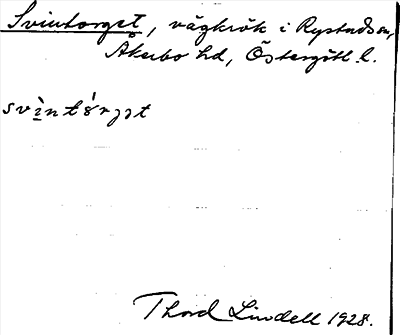 Svintorget, vägkrök i Rystads sn,
Åkerbo hd, Östergötl. l.
svìntór̡jət
Thord Lindell 1928.